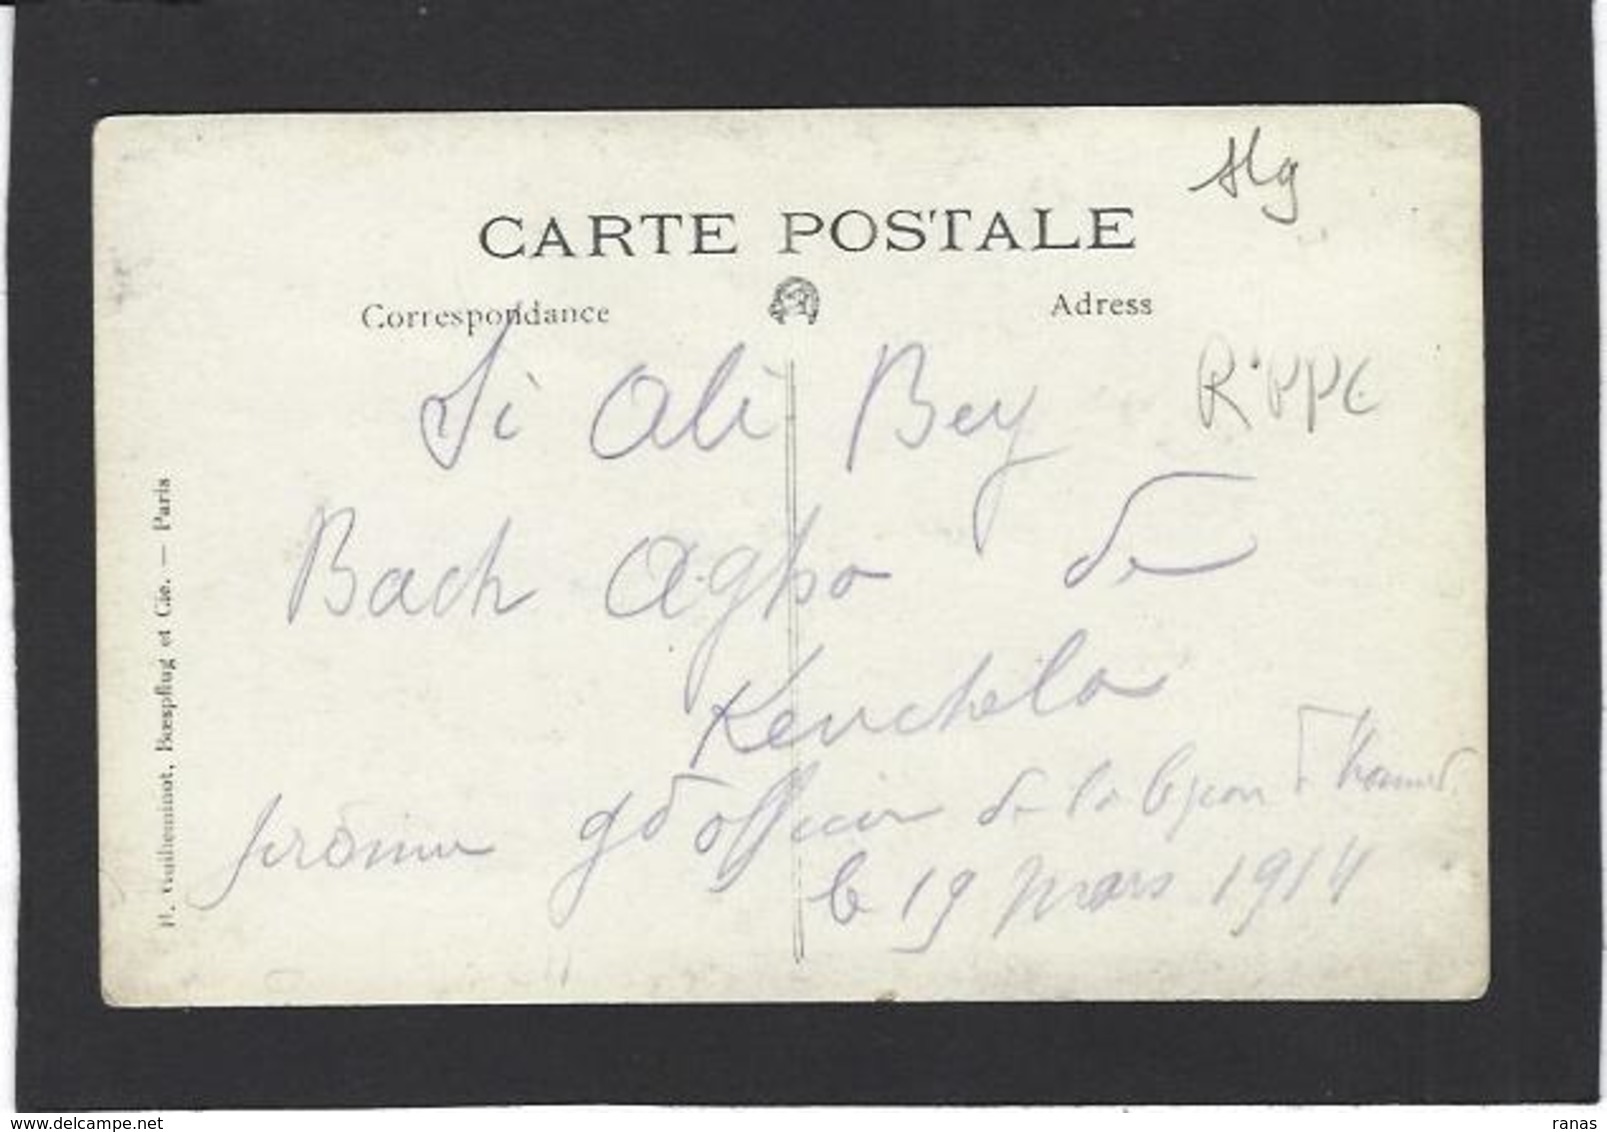 Alg
CARTE POSTALE
Correspondance
Adress
Si Ali Bey
R. PPC
Bach Agha de
Kenchela
promu gd officier de la légion d'honneur
le 19 mars 1914
H. Guilleminot, Bœspflug et Cie. — Paris
www.delcampe.net
ranas